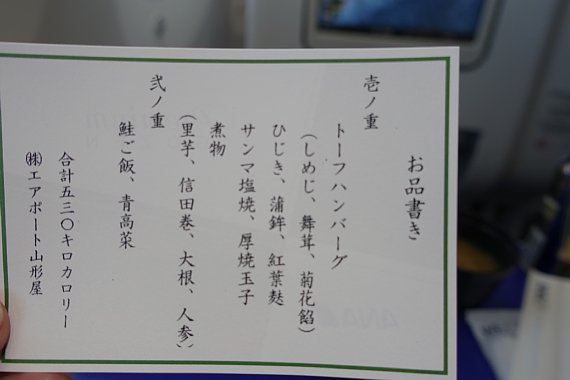 お品書き
壱ノ重
トーフハンバーグ
(しめじ、舞茸、菊花餡)
ひじき、蒲鉾、紅葉麩
サンマ塩焼、厚焼玉子
煮物
(里芋、信田巻、大根、人参)
弐ノ重
鮭ご飯、青高菜
合計五三〇キロカロリー
㈱エアポート山形屋